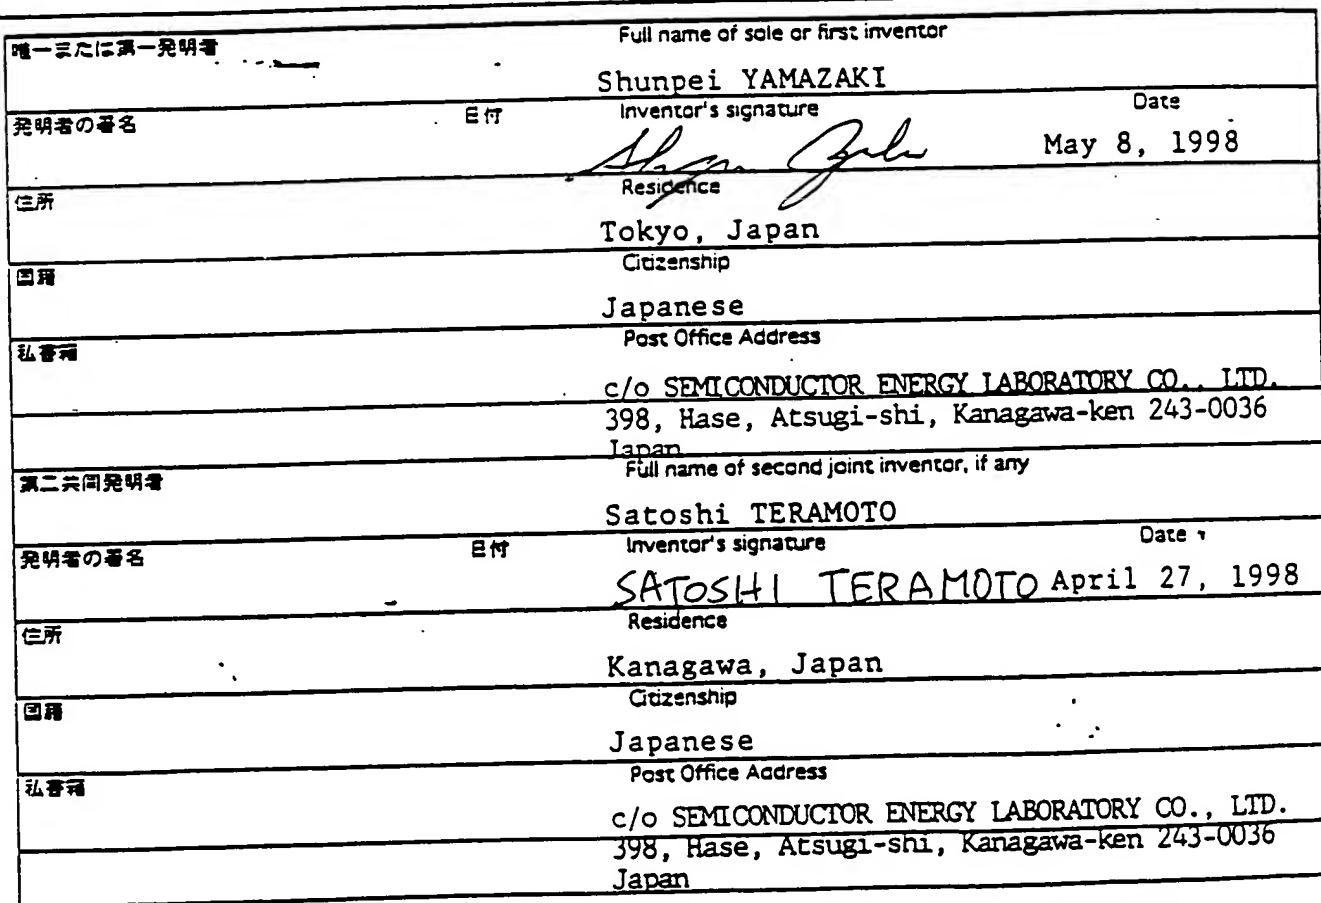 唯一または第一発明者
Full name of sole or first inventor
Shunpei YAMAZAKI
発明者の署名 日付 Inventor's signature Date
May 8, 1998
住所 Residence
Tokyo, Japan
国籍 Citizenship
Japanese
私書箱 Post Office Address
c/o SEMICONDUCTOR ENERGY LABORATORY CO., LTD.
398, Hase, Atsugi-shi, Kanagawa-ken 243-0036
Japan
第二共同発明者 Full name of second joint inventor, if any
Satoshi TERAMOTO
発明者の署名 日付 Inventor's signature Date
SATOSHI TERAMOTO April 27, 1998
住所 Residence
Kanagawa, Japan
国籍 Citizenship
Japanese
私書箱 Post Office Address
c/o SEMICONDUCTOR ENERGY LABORATORY CO., LTD.
398, Hase, Atsugi-shi, Kanagawa-ken 243-0036
Japan